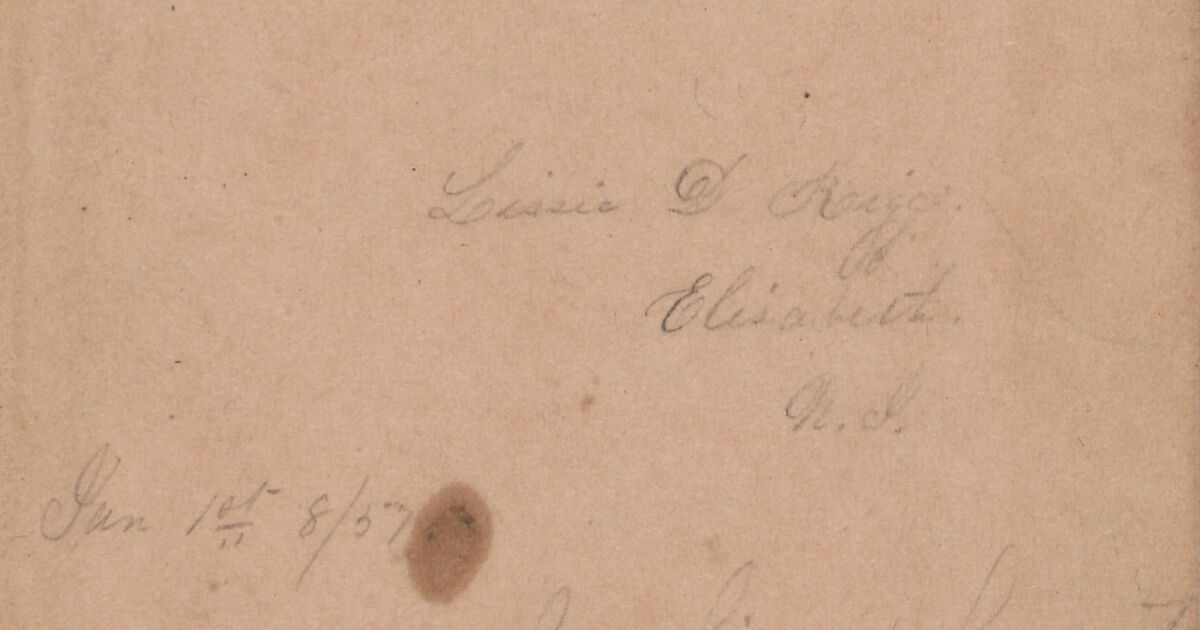 Lissie D Riggs.
Elisabeth.
N. J.
Jan 1st 8/57